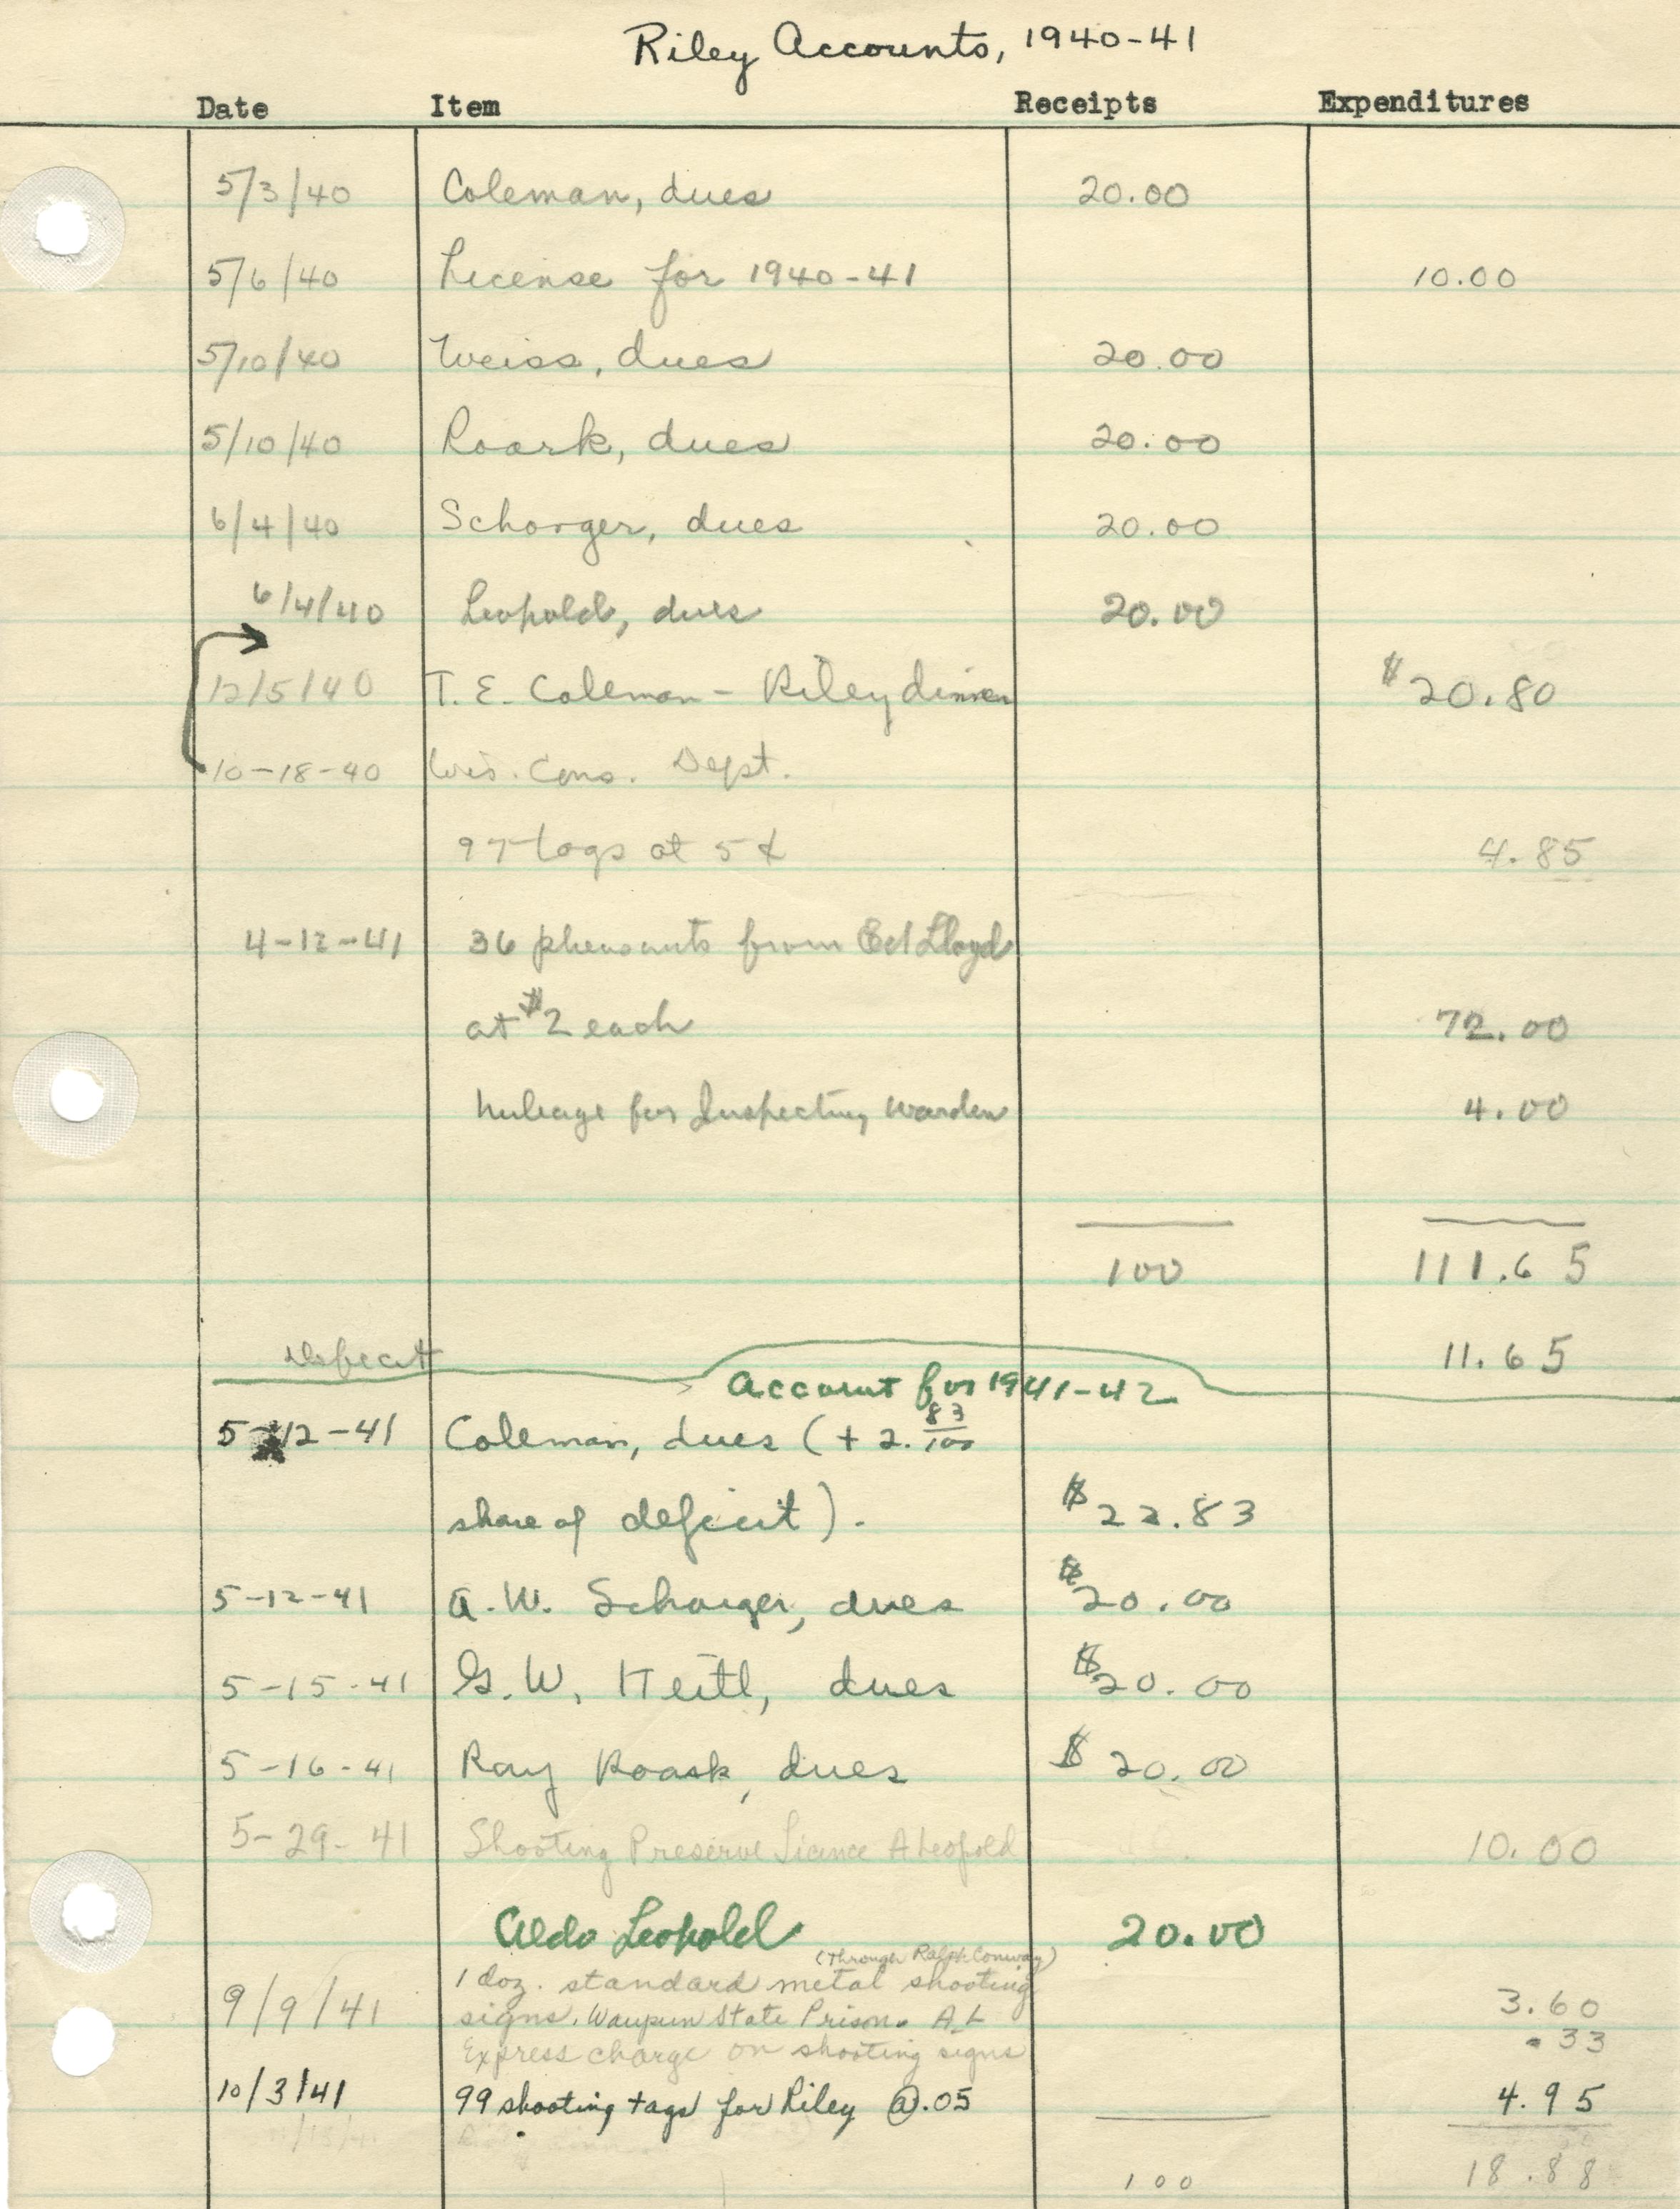 Riley Accounts, 1940-41
Date Item Receipts Expenditures
5/3/40 Coleman, dues 20.00
5/6/40 License for 1940-41 10.00
5/10/40 Weiss, dues 20.00
5/10/40 Roark, dues 20.00
6/4/40 Schorger, dues 20.00
6/4/40 Leopold, dues 20.00
12/5/40 T. E. Coleman - Riley dinner $20.80
10-18-40 Wis. Cons. Dept.
97 tags at 5¢ 4.85
4-12-41 36 pheasants from Ed Lloyd
at $2 each 72.00
Mileage for Inspecting Warden 4.00
100 111.65
Deficit 11.65
Account for 1941-42
5-12-41 Coleman, dues (+ 2. 83/100
share of deficit). $22.83
5-12-41 A. W. Schorger, dues $20.00
5-15-41 G. W. Keitl, dues $20.00
5-16-41 Ray Roark, dues $20.00
5-29-41 Shooting Preserve Licence A Leopold 10.00
Aldo Leopold 20.00
(Through Ralph Conway)
1 doz. standard metal shooting
9/9/41 signs. Waupun State Prison. AL 3.60
Express charge on shooting signs .33
10/3/41 99 shooting tags for Riley @ .05 4.95
100 18.88